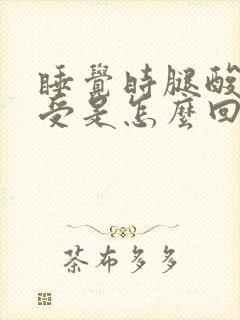 睡覺時腿酸
受是怎麼回
茶布多多